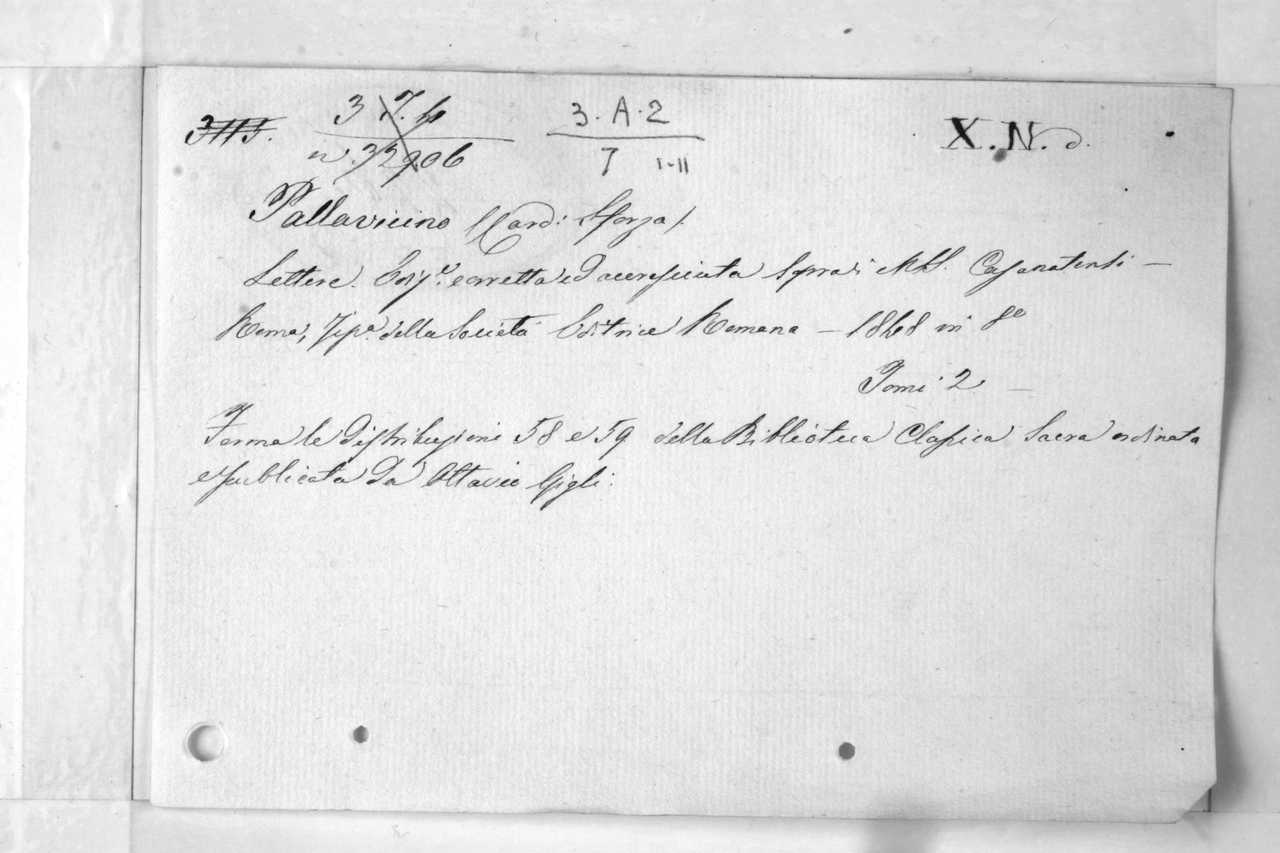 3115. 3 7.6 3.A.2 X.N.d.
n. 32906 7 I-II
Pallavicino (Card: Sforza).
Lettere. Ediz.e corretta ed accresciuta sopra i MSS. Casanatensi —
Roma, Tip.a della Società Editrice Romana — 1848 in 8.o
Tomi 2 —
Forma le distribuzioni 58 e 59 della Biblioteca Classica Sacra ordinata
e pubblicata da Ottavio Gigli.